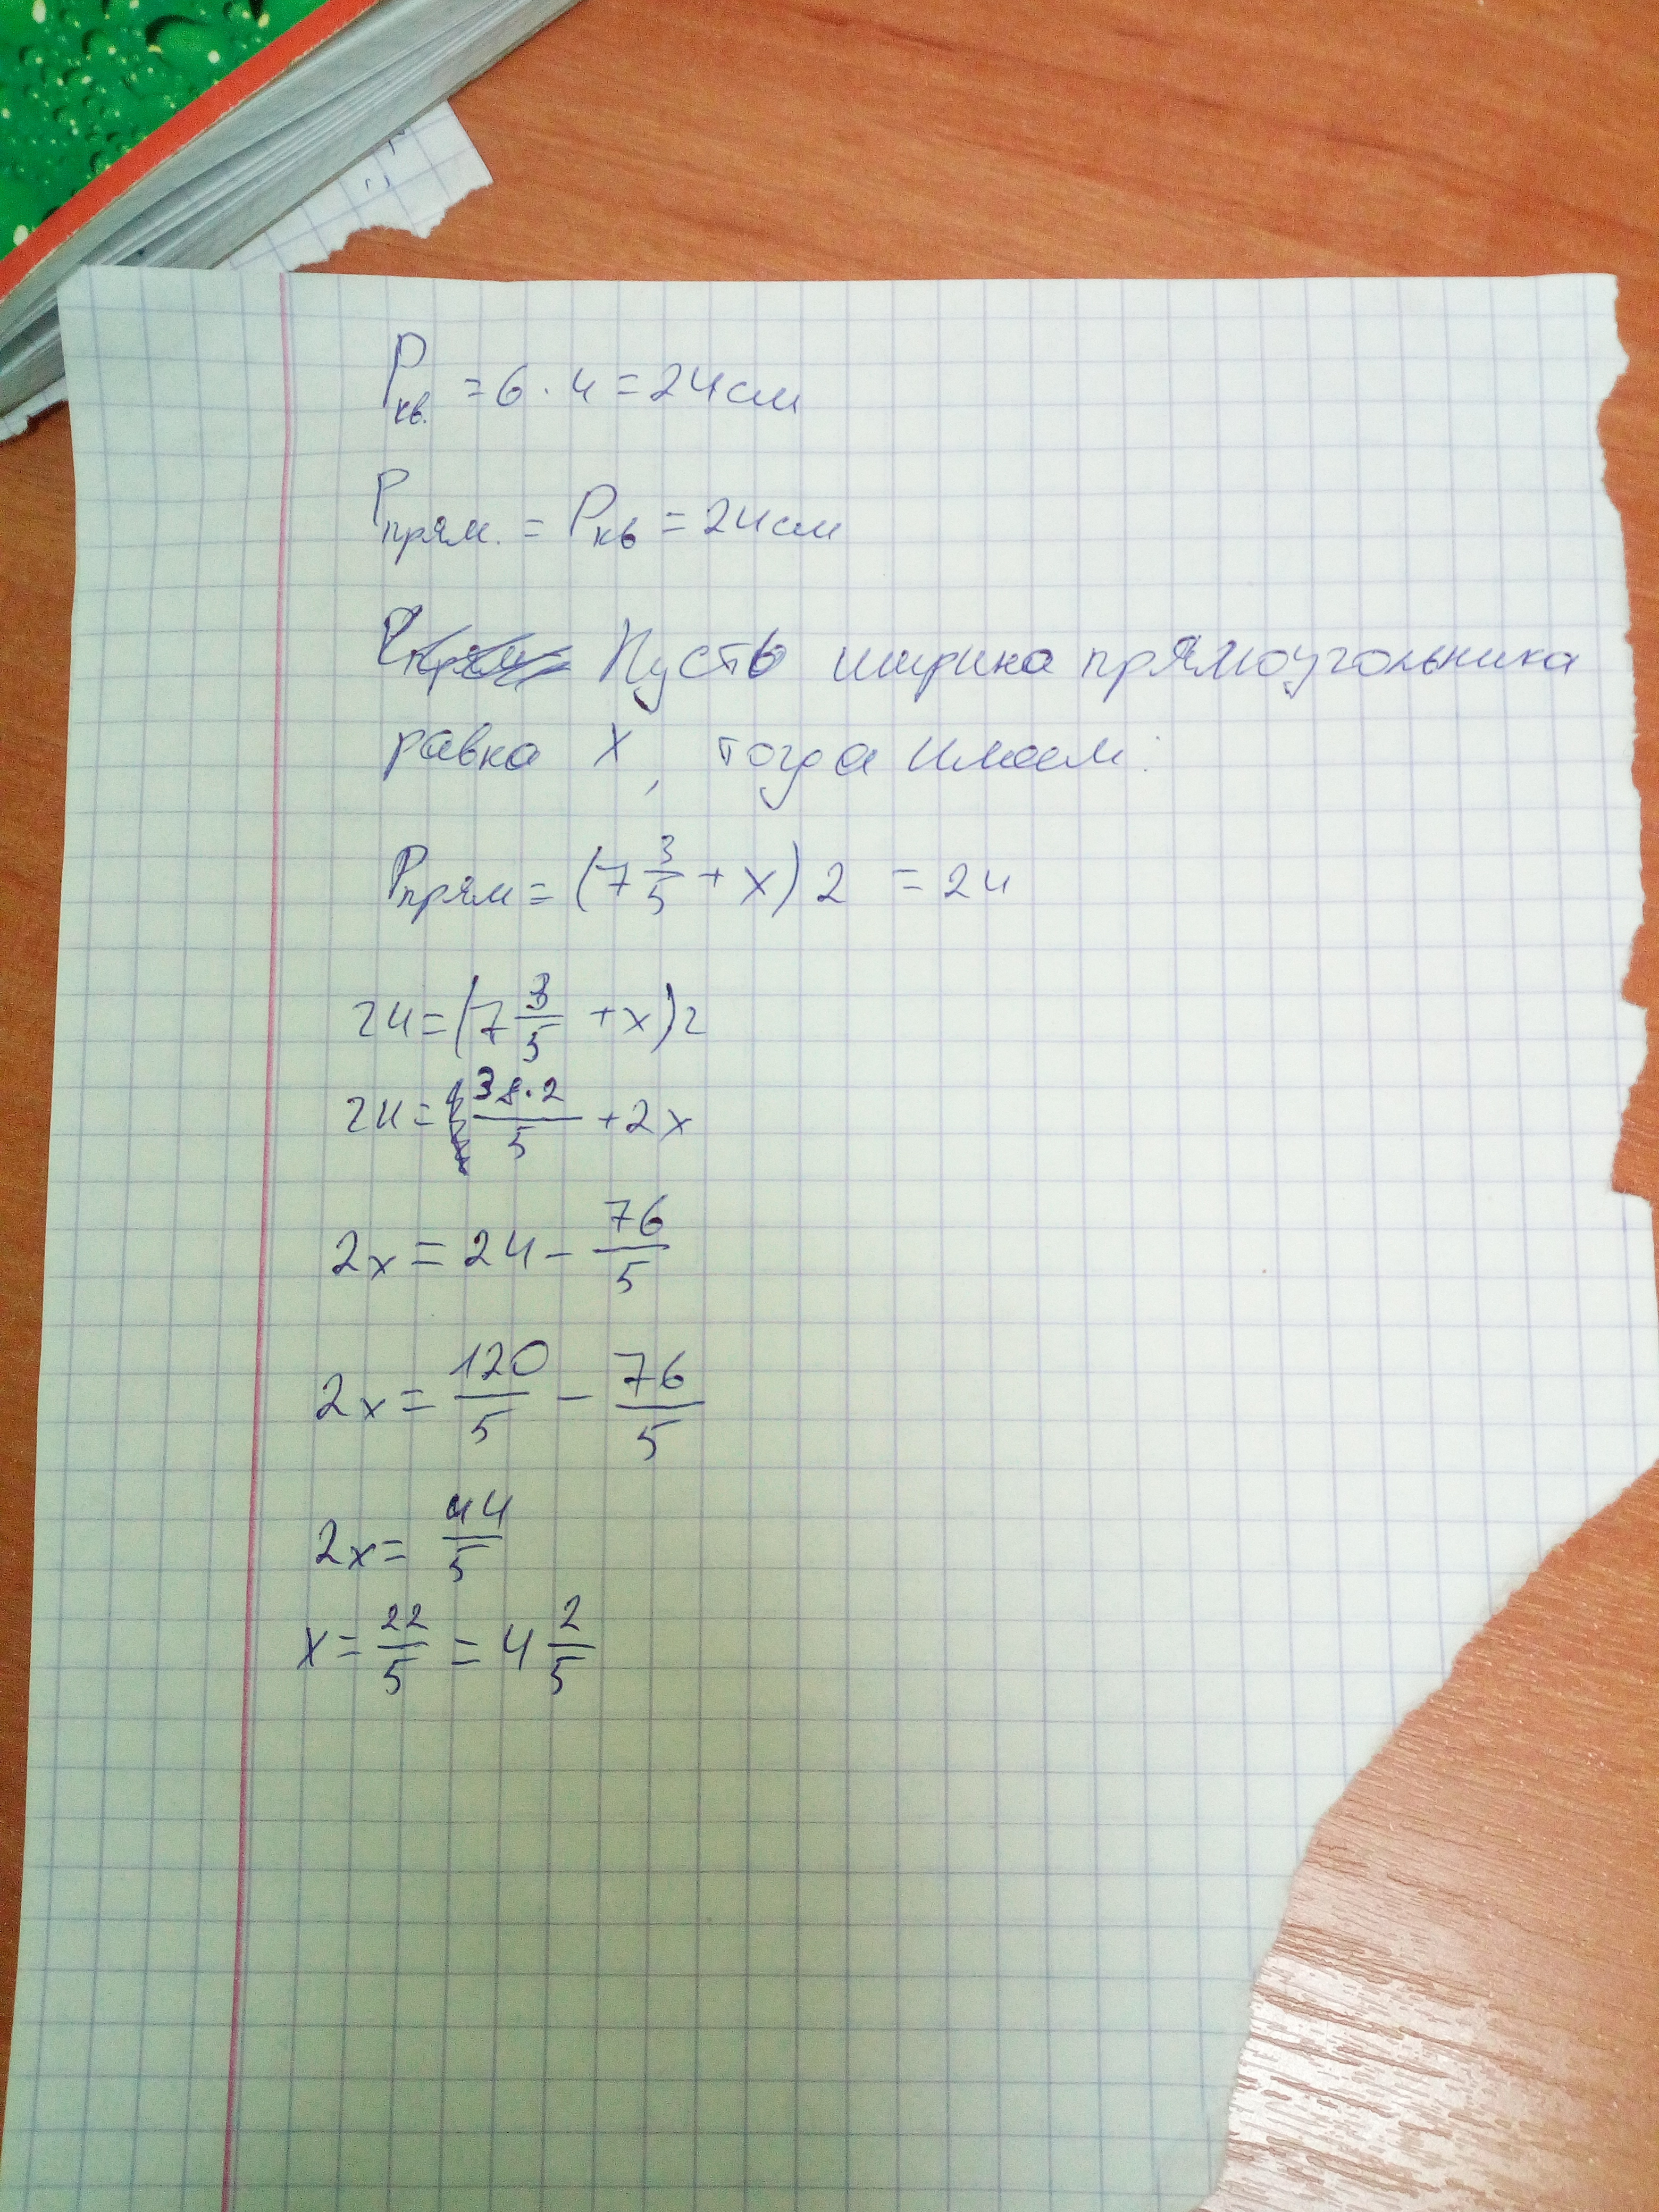 Pкв. = 6 · 4 = 24см
Pпрям. = Pкв = 24см
Пусть ширина прямоугольника
равна x, тогда имеем:
Pпрям = (7 3/5 + x) 2 = 24
24 = (7 3/5 + x) 2
24 = 38·2/5 + 2x
2x = 24 - 76/5
2x = 120/5 - 76/5
2x = 44/5
x = 22/5 = 4 2/5